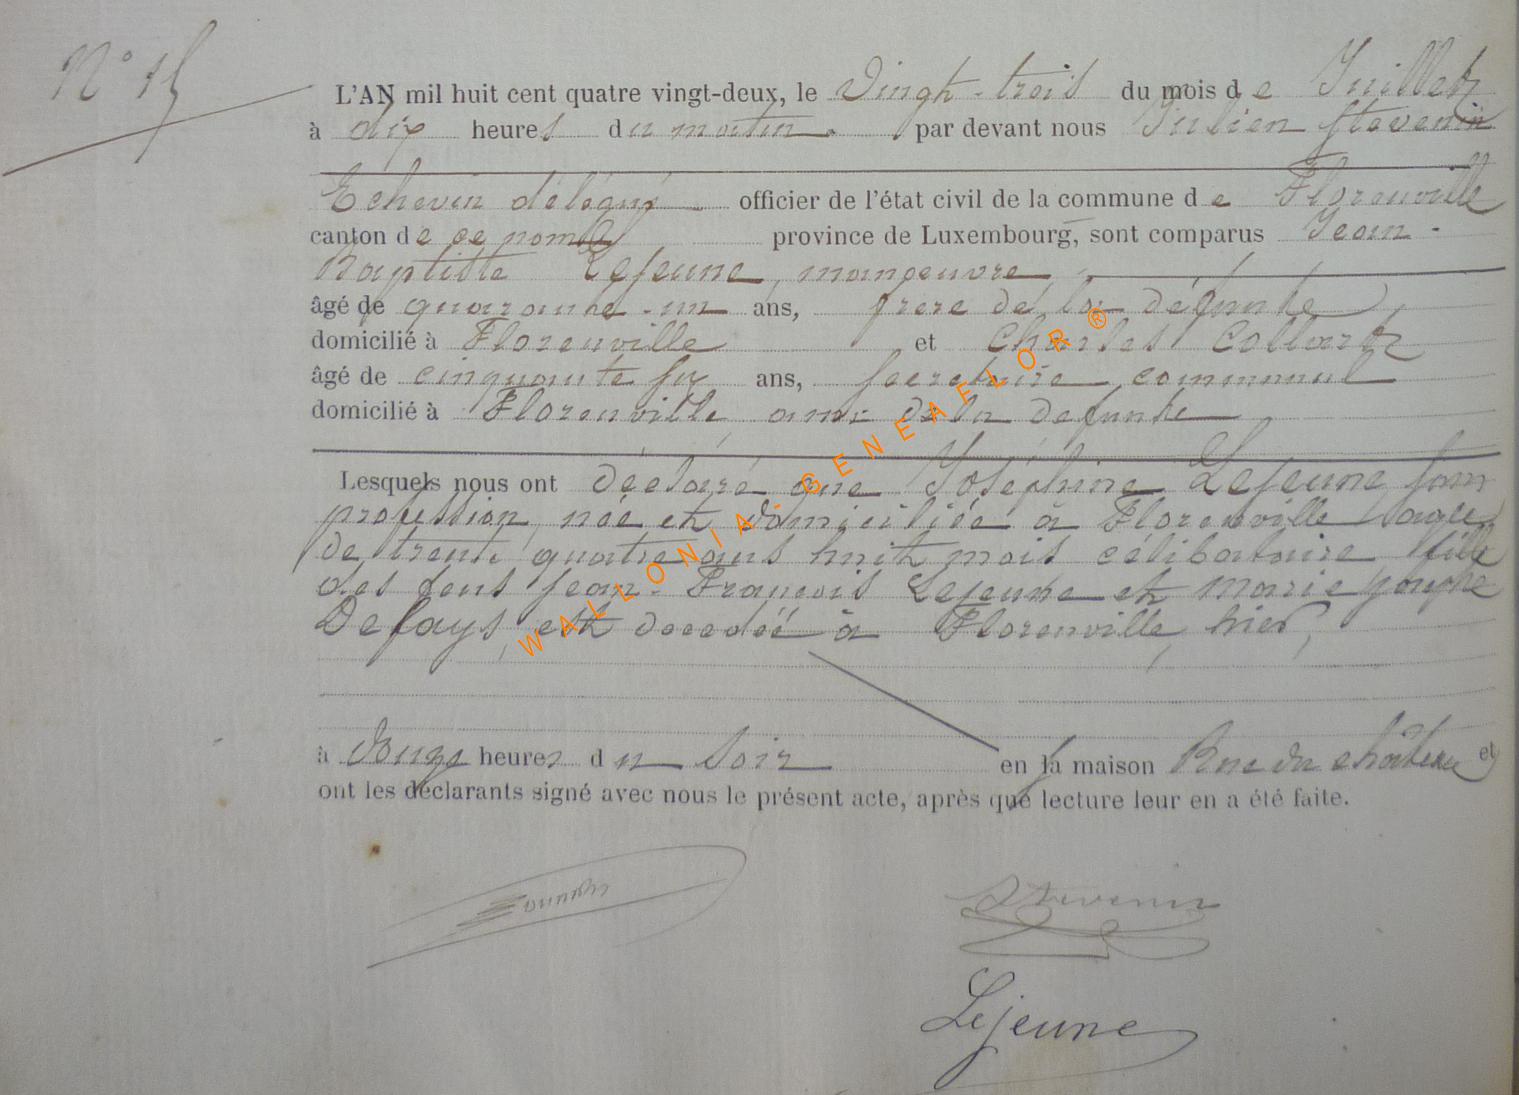 N° 15
L'AN mil huit cent quatre vingt-deux, le Vingt-trois du mois de Juillet
à dix heures du matin par devant nous Julien Stevenin
Echevin délégué officier de l'état civil de la commune de Florenville
canton de ce nom province de Luxembourg, sont comparus Jean-
Baptiste Lejeune, manoeuvre,
âgé de quarante-un ans, frere de la défunte
domicilié à Florenville et Charles Collart
âgé de cinquante six ans, secretaire communal
domicilié à Florenville, ami de la defunte
Lesquels nous ont déclaré que Joséphine Lejeune sans
profession, née et domiciliée à Florenville agée
de trente quatre ans huit mois célibataire fille
des feus Jean-François Lejeune et marie josephe
Defays, est decedéé à Florenville, hier,
à douze heures du soir en la maison Rue du château et
ont les déclarants signé avec nous le présent acte, après que lecture leur en a été faite.
Stevenin
Lejeune
WALLONIA-GENEAFLOR®